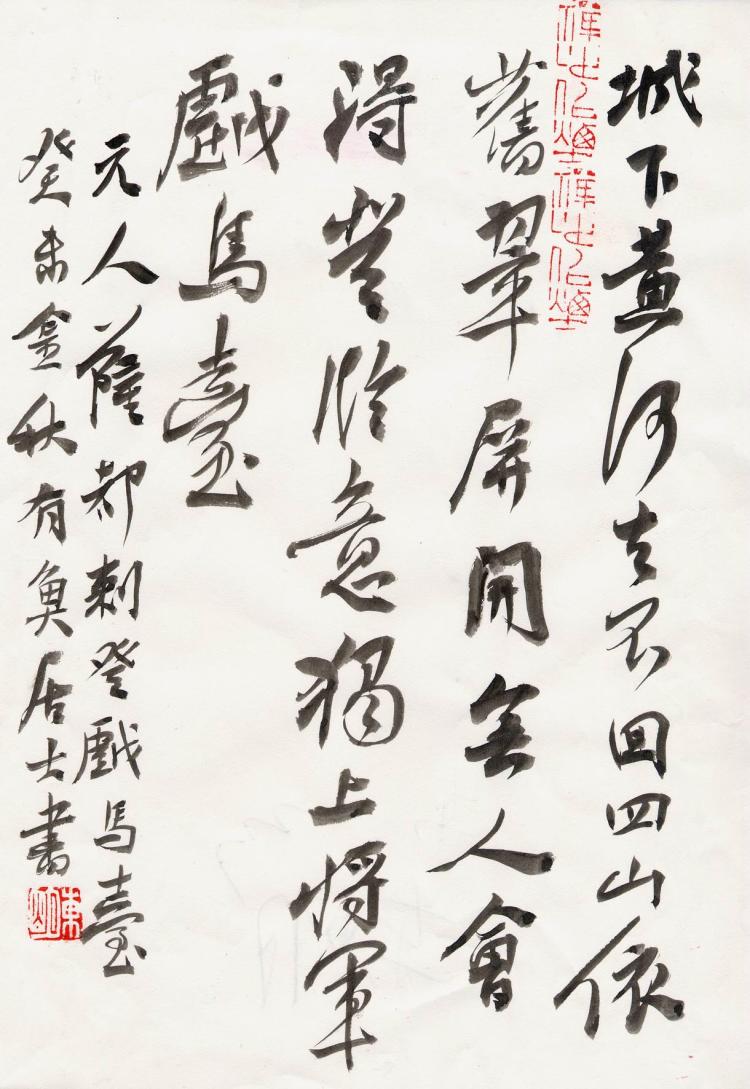 城下黃河去不回四山依
舊翠屏開無人會
得登臨意獨上將軍
戲馬臺
元人薩都剌登戲馬臺
癸未金秋有魚居士書